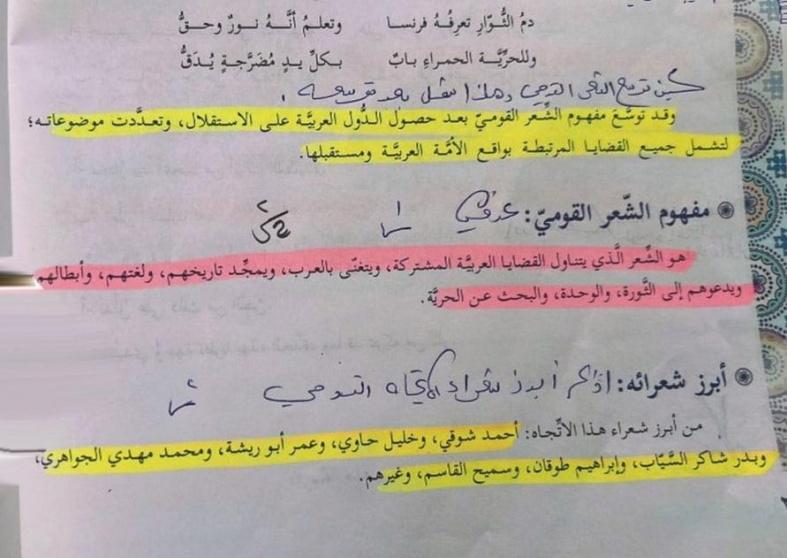 دمُ الثُّوَّارِ تعرفُهُ فرنسا وتعلمُ أنَّهُ نورٌ وحقُّ
وللحرِّيَّةِ الحمراءِ بابٌ بكلِّ يدٍ مُضَرَّجةٍ يُدَقُّ
وقد توسَّعَ مفهوم الشِّعر القوميّ بعد حصول الدُّول العربيَّة على الاستقلال، وتعدَّدت موضوعاته؛
لتشمل جميع القضايا المرتبطة بواقع الأمَّة العربيَّة ومستقبلها.
مفهوم الشّعر القوميّ: عرفي
هو الشِّعر الَّذي يتناول القضايا العربيَّة المشتركة، ويتغنّى بالعرب، ويمجِّد تاريخهم، ولغتهم، وأبطالهم
ويدعوهم إلى الثَّورة، والوحدة، والبحث عن الحريَّة.
أبرز شعرائه: اذكر أبرز شعراء الاتجاه القومي
من أبرز شعراء هذا الاتِّجاه: أحمد شوقي، وخليل حاوي، وعمر أبو ريشة، ومحمد مهدي الجواهري،
وبدر شاكر السَّيّاب، وإبراهيم طوقان، وسميح القاسم، وغيرهم.